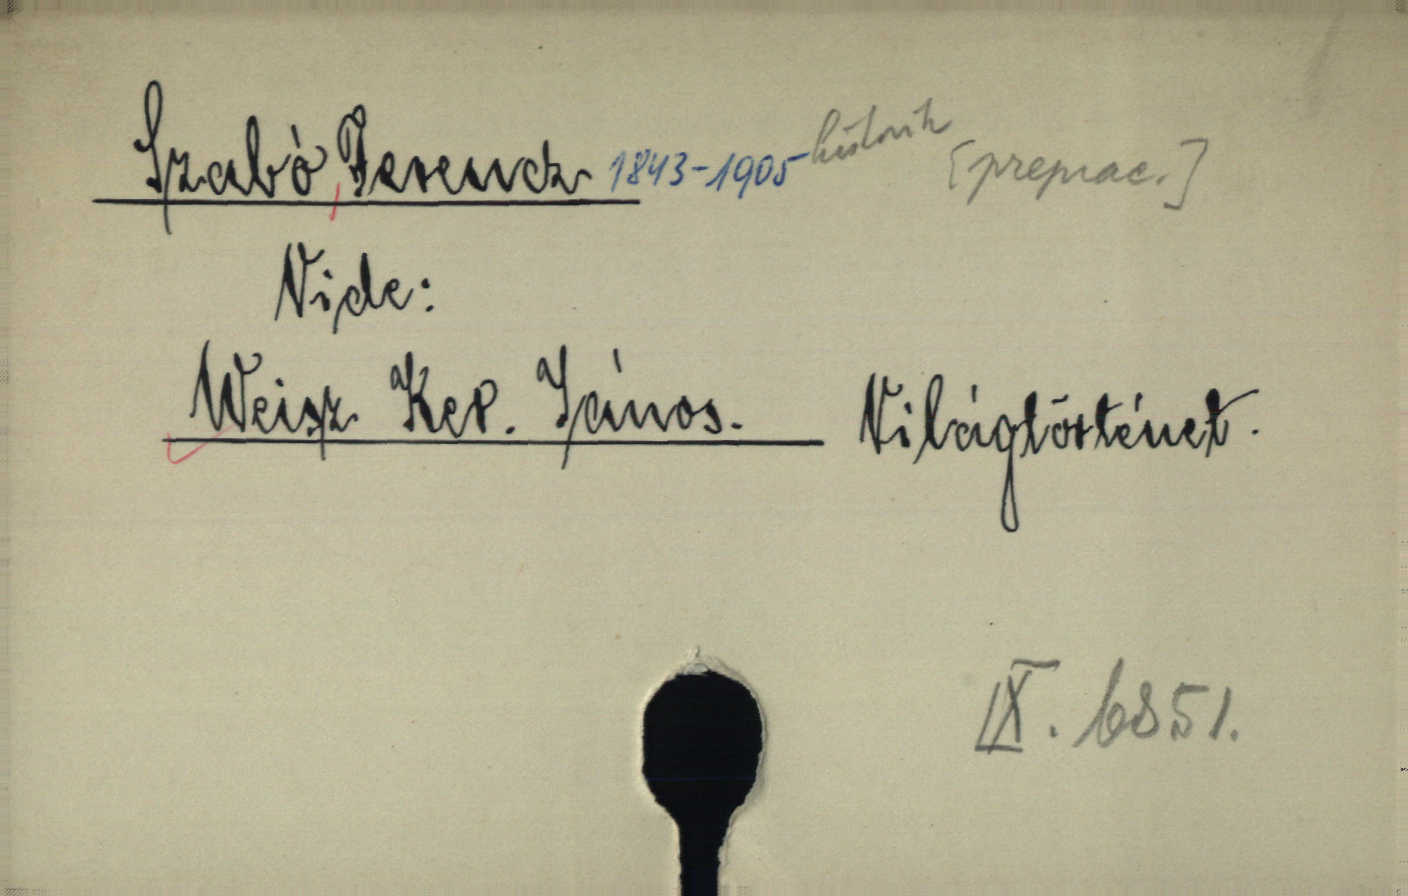 Szabó, Ferencz 1843-1905 historik [preprac.]
Vide:
Weisz Ker. János. Világtörténet.
IX. 6851.